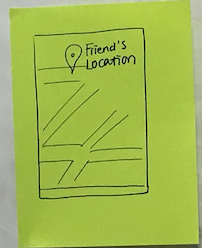 Friend's
Location